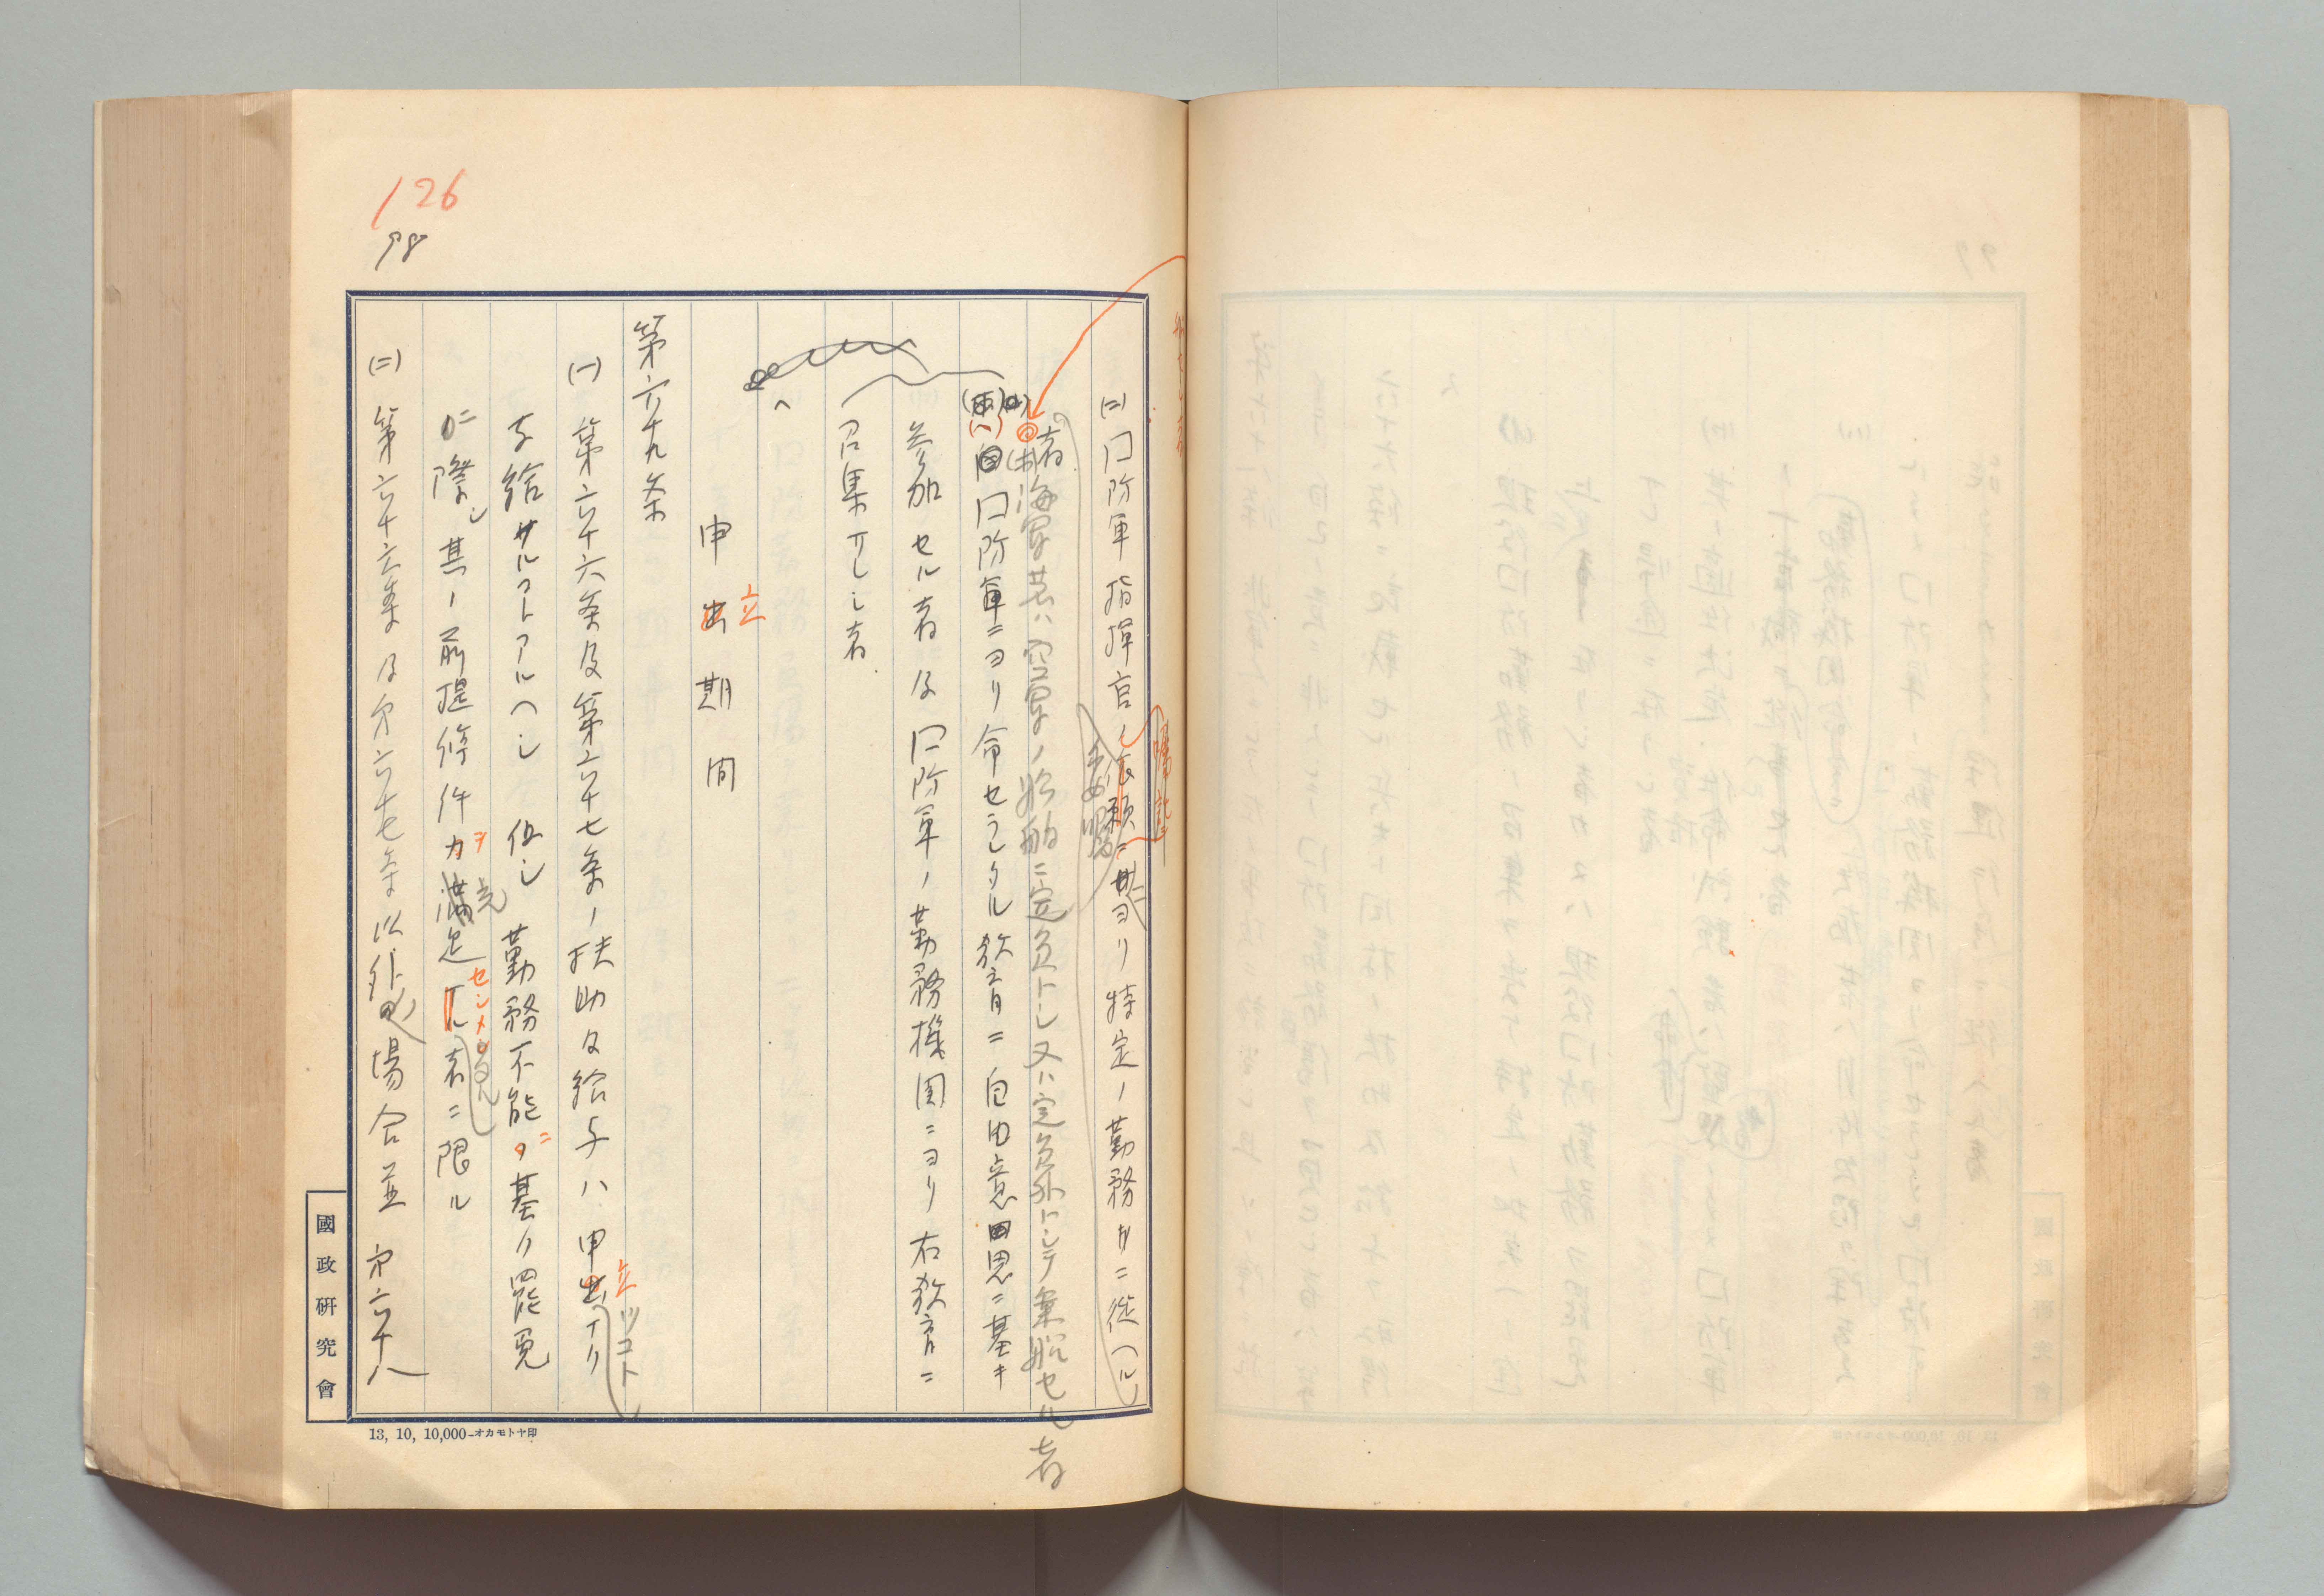 126
98
(二) 国防軍指揮官ノ依頼ニヨリ特定ノ勤務ニ従ヘル
嘱託
者
海軍若ハ空軍ノ船舶ニ定員トシ又ハ定員外トシテ乗船セル者
(ハ) 国防軍ニヨリ命セラレタル教育ニ自由意思ニ基キ
参加セル者及国防軍ノ勤務機関ニヨリ右教育ニ
召集サレシ者
申出期間
立
第六十九条
(一) 第六十六条及第六十七条ノ扶助及給与ハ申出ナク
立
ツコト
支給サルコトアルヘシ 但シ勤務不能ニ基ク罷免
ノ際シ其ノ前提条件カ満足サル者ニ限ル
ヲ
充
セシメ
(二) 第六十六条及第六十七条以外ノ場合並第六十八
國政研究會
13, 10, 10,000-オカモトヤ印